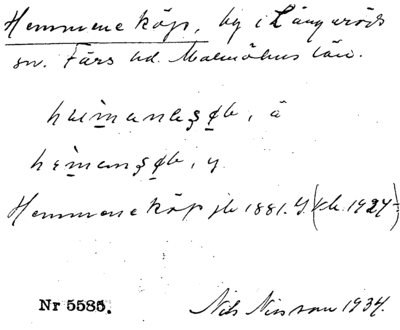 Hemmeneköp, by i Långaröds
sn. Färs hd. Malmöhus län.
ä
y.
Hemmeneköp jb 1881. y. (kb. 1924)
Nr 5585. Nils Nilsson 1934.